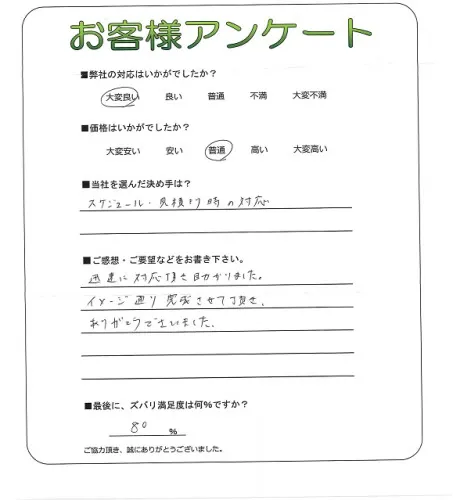 お客様アンケート
■弊社の対応はいかがでしたか？
大変良い 良い 普通 不満 大変不満
■価格はいかがでしたか？
大変安い 安い 普通 高い 大変高い
■当社を選んだ決め手は？
スケジュール・見積り時の対応
■ご感想・ご要望などをお書き下さい。
迅速に対応頂き助かりました。
イメージ通り完成させて頂き、
ありがとうございました。
■最後に、ズバリ満足度は何％ですか？
80 ％
ご協力頂き、誠にありがとうございました。